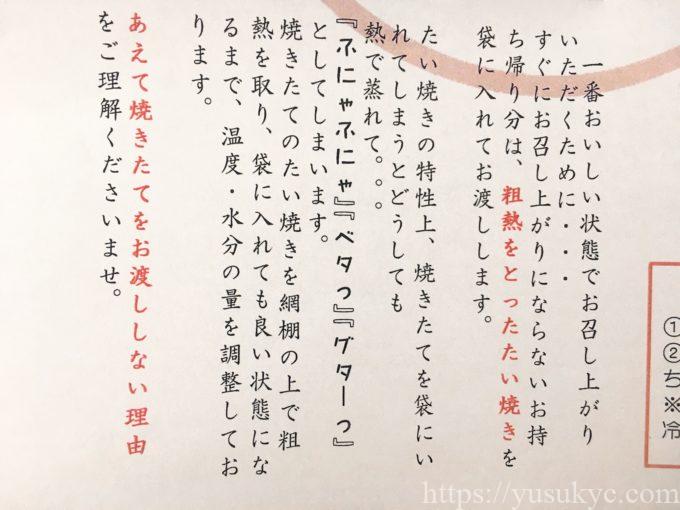 一番おいしい状態でお召し上がり
いただくために・・・
すぐにお召し上がりにならないお持
ち帰り分は、粗熱をとったたい焼きを
袋に入れてお渡しします。
たい焼きの特性上、焼きたてを袋にい
れてしまうとどうしても
熱で蒸れて。。。
『ふにゃふにゃ』『ベタっ』『グターっ』
としてしまいます。
焼きたてのたい焼きを網棚の上で粗
熱を取り、袋に入れても良い状態にな
るまで、温度・水分の量を調整してお
ります。
あえて焼きたてをお渡ししない理由
をご理解くださいませ。
①
②
ち
※
冷
https://yusukyc.com